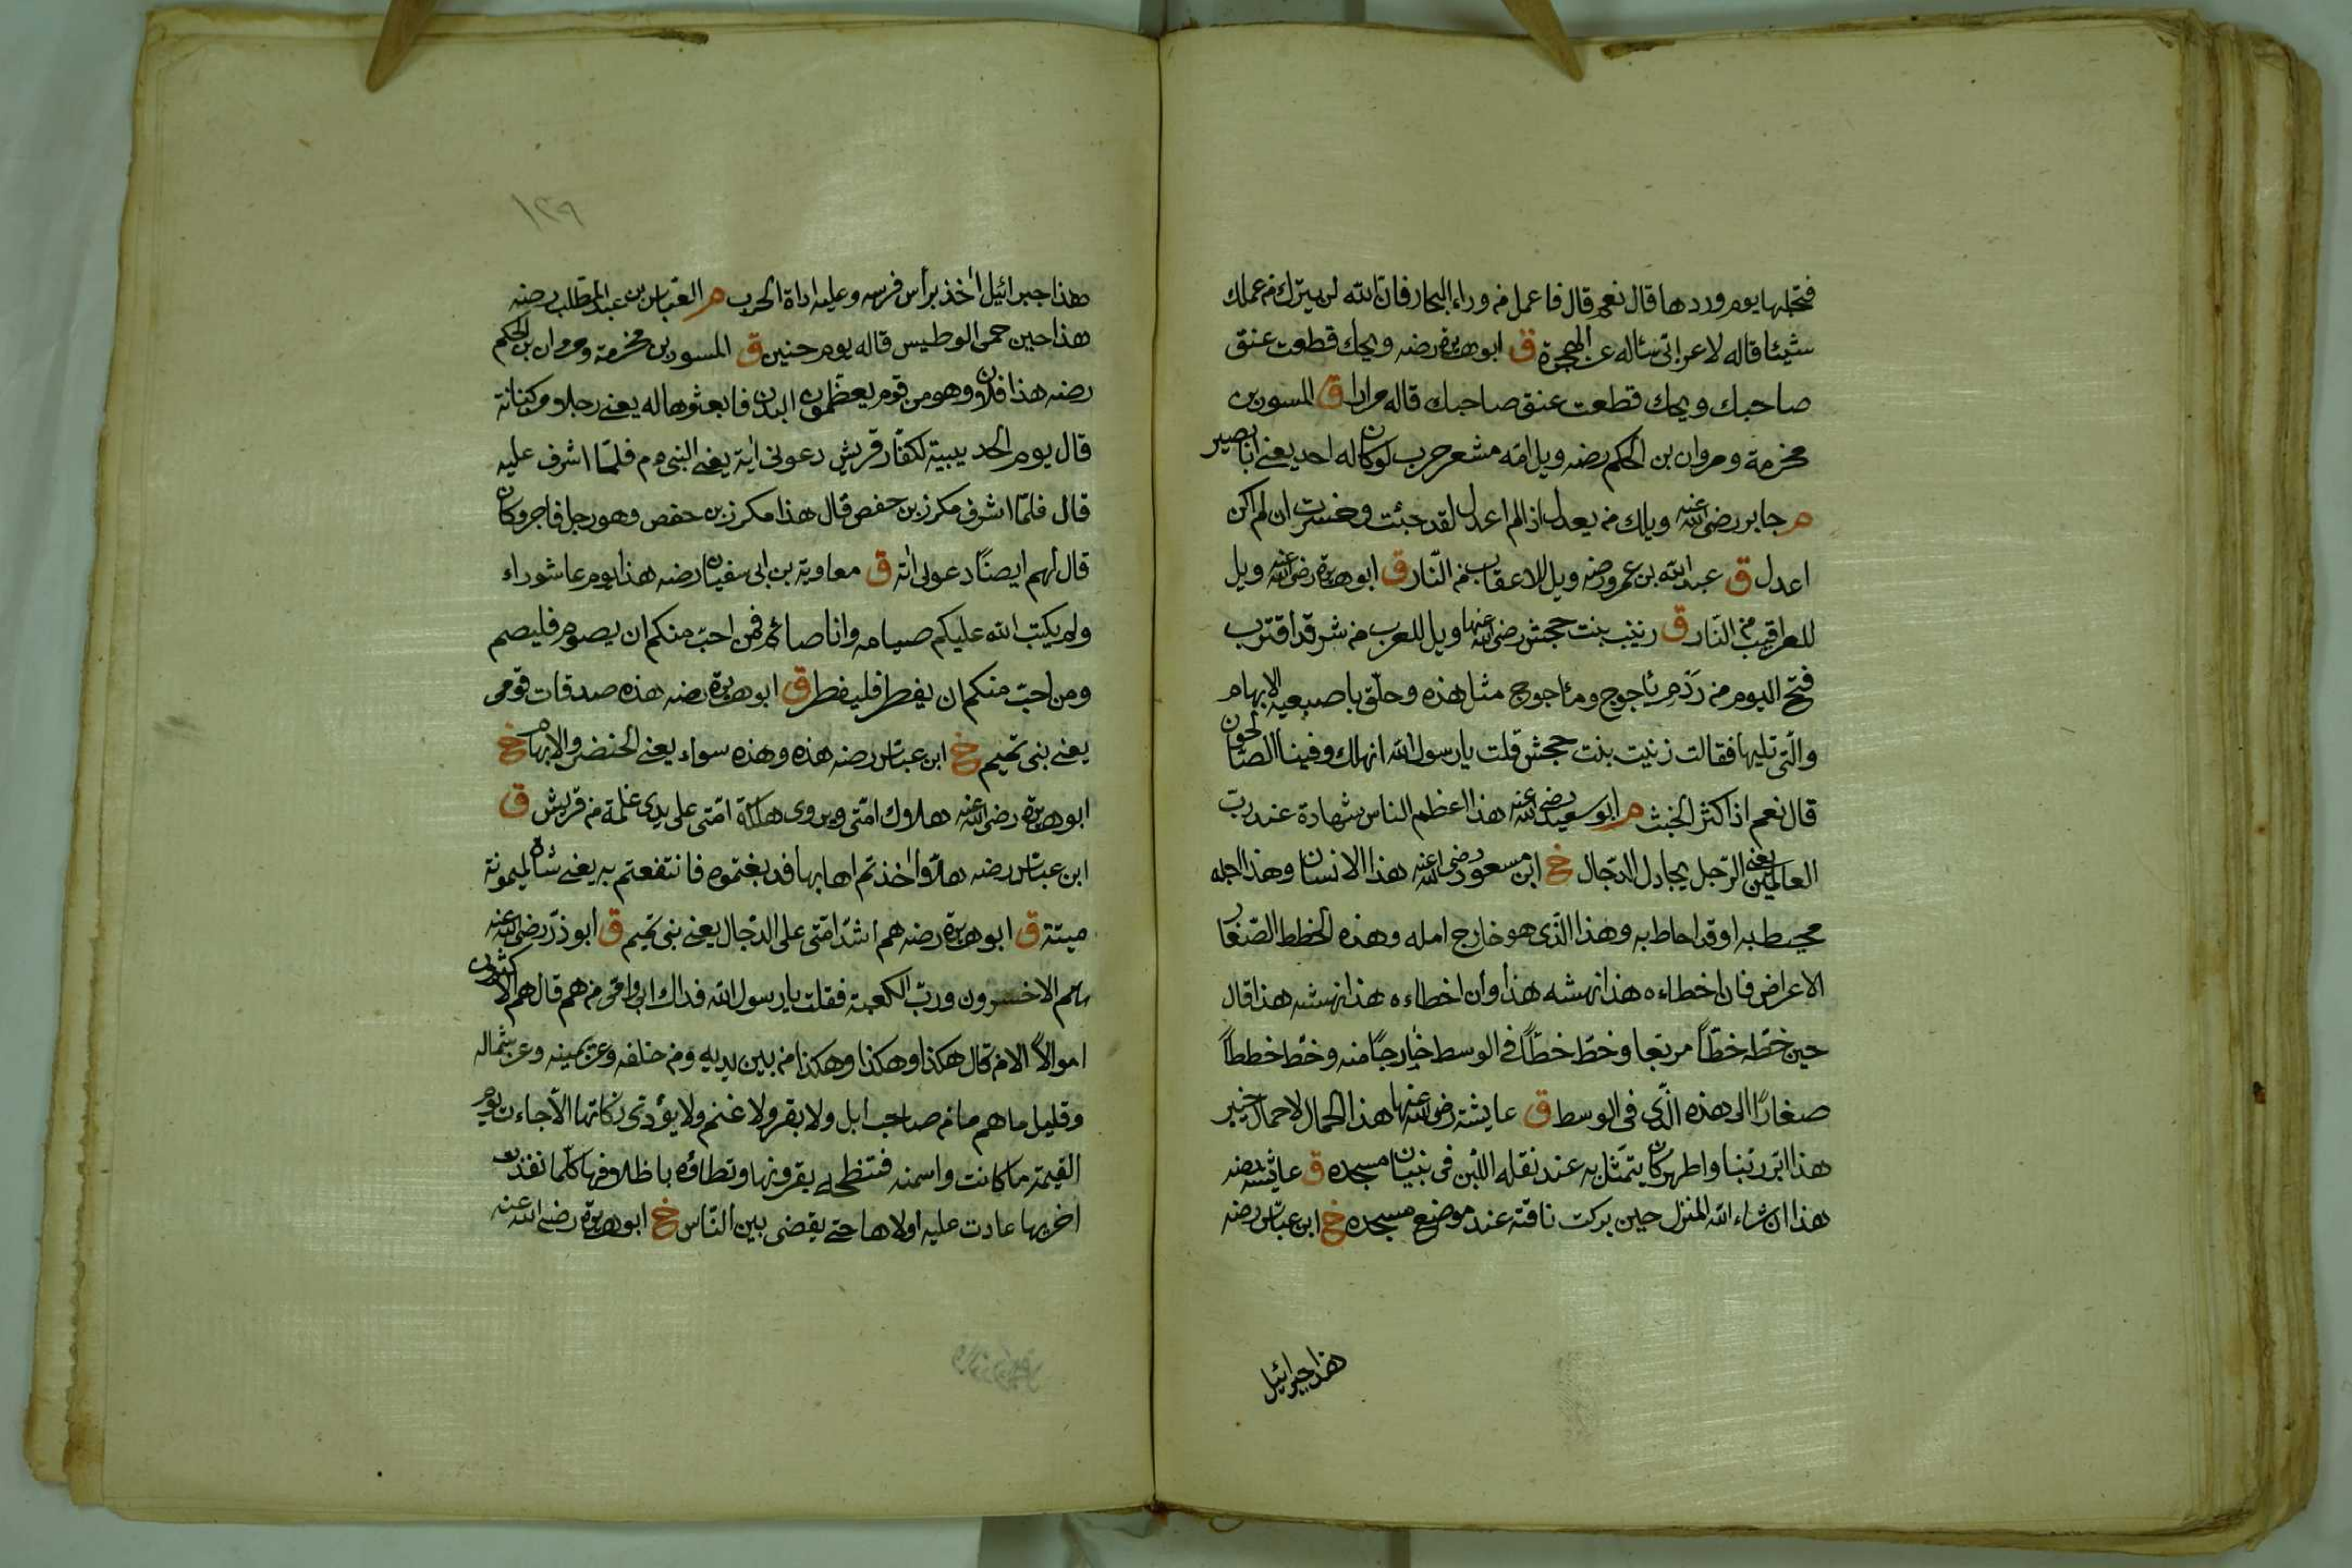 فتحلبها يوم وردها قال نعم قال فاعمل من وراء البحار فان الله لن يترك من عملك
شيئا قاله لاعرابى سأله عن الهجرة ق ابو هريرة رضه ويحك قطعت عنق
صاحبك ويحك قطعت عنق صاحبك قاله مرارا ق المسور بن
مخرمة ومروان بن الحكم رضه ويل امه مشعر حرب لو كان له احد يعنى ابا بصير
م جابر رضى الله عنه ويلك من يعدل اذا لم اعدل لقد خبت وخسرت ان لم اكن
اعدل ق عبد الله بن عمرو رضه ويل للاعقاب من النار ق ابو هريرة رضى الله عنه ويل
للعراقيب من النار ق زينب بنت جحش رضى الله عنها ويل للعرب من شر قد اقترب
فتح اليوم من ردم يأجوج ومأجوج مثل هذه وحلق باصبعيه الابهام
والتى تليها فقالت زينب بنت جحش قلت يا رسول الله انهلك وفينا الصالحون
قال نعم اذا كثر الخبث م ابو سعيد رضى الله عنه هذا اعظم الناس شهادة عند رب
العالمين يعنى الرجل يجادل الدجال خ ابن مسعود رضى الله عنه هذا الانسان وهذا اجله
محيط به او قد احاط به وهذا الذى هو خارج امله وهذه الخطط الصغار
الاعراض فان اخطاءه هذا نهشه هذا وان اخطاءه هذا نهشه هذا قال
حين خط خطا مربعا وخط خطا فى الوسط خارجا منه وخط خططا
صغارا الى هذه الذى فى الوسط ق عايشة رضى الله عنها هذا الحمال لا حمال خيبر
هذا ابر ربنا واطهر كان يتمثل به عند نقله اللبن فى بنيان مسجده ق عائشة رضه
هذا ان شاء الله المنزل حين بركت ناقته عند موضع مسجده خ ابن عباس رضه
هذا جبرائيل
١٣٩
هذا جبرائيل اخذ برأس فرسه وعليه اداة الحرب م العباس بن عبد المطلب رضه
هذا حين حمى الوطيس قاله يوم حنين ق المسور بن مخرمة ومروان بن الحكم
رضه هذا فلان وهو من قوم يعظمون البدن فابعثوها له يعنى رجلا من كنانة
قال يوم الحديبية لكفار قريش دعونى اته يعنى النبى م فلما اشرف عليه
قال فلما اشرف مكرز بن حفص قال هذا مكرز بن حفص وهو رجل فاجر وكان
قال لهم ايضا دعونى اته ق معاوية بن ابى سفيان رضه هذا يوم عاشوراء
ولم يكتب الله عليكم صيامه وانا صائم فمن احب منكم ان يصوم فليصم
ومن احب منكم ان يفطر فليفطر ق ابو هريرة رضه هذه صدقات قومى
يعنى بنى تميم خ ابن عباس رضه هذه وهذه سواء يعنى الخنصر والابهام خ
ابو هريرة رضى الله عنه هلاك امتى ويروى هلكة امتى على يدى غلمة من قريش ق
ابن عباس رضه هلا اخذتم اهابها فدبغتموه فانتفعتم به يعنى شاة لميمونة
ميتة ق ابو هريرة رضه هم اشد امتى على الدجال يعنى بنى تميم ق ابو ذر رضى الله عنه
هم الاخسرون ورب الكعبة فقلت يا رسول الله فداك ابى وامى من هم قال هم الاكثرون
اموالا الا من قال هكذا وهكذا وهكذا من بين يديه ومن خلفه وعن يمينه وعن شماله
وقليل ما هم ما من صاحب ابل ولا بقر ولا غنم ولا يؤدى زكاتها الا جاءت يوم
القيمة ما كانت واسمنه فتنطحه بقرونها وتطاؤه باظلافها كلما نفذت
اخريها عادت عليه اولاها حتى يقضى بين الناس خ ابو هريرة رضى الله عنه